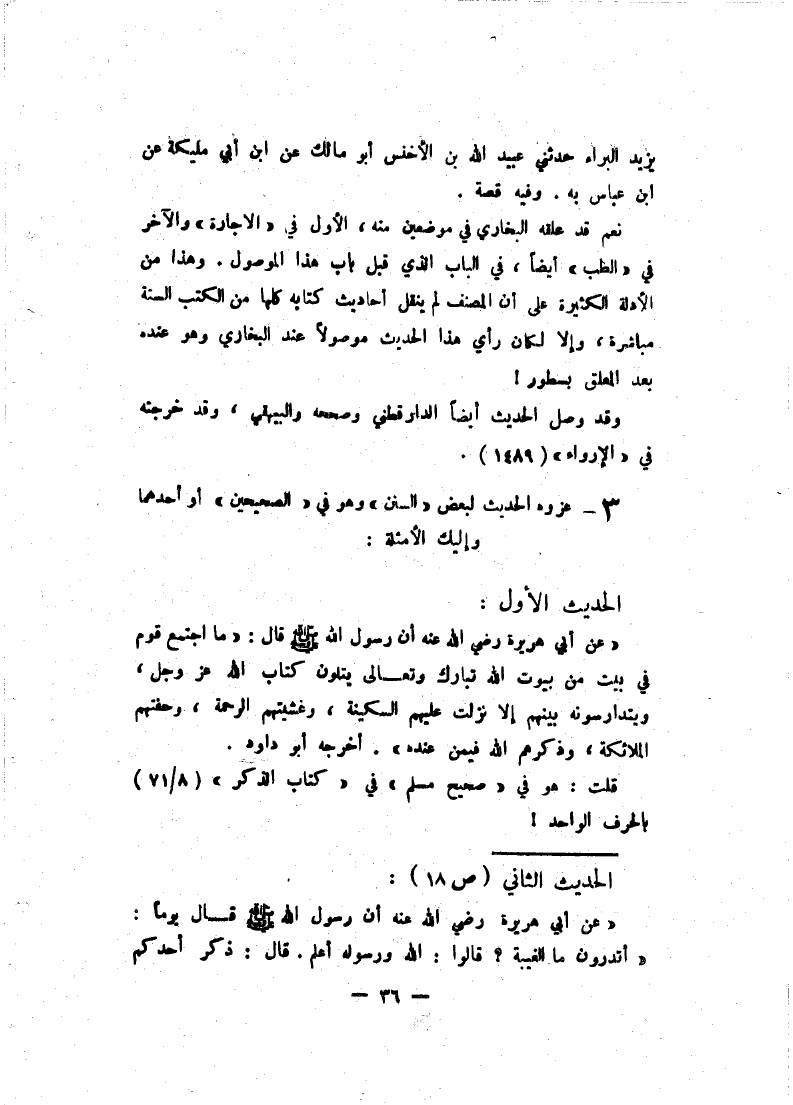 يزيد البراء حدثني عبيد الله بن الأخنس أبو مالك عن ابن أبي مليكة عن
ابن عباس به . وفيه قصة .
نعم قد علقه البخاري في موضعين منه ، الأول في « الاجارة » والآخر
في « الطب » أيضاً ، في الباب الذي قبل باب هذا الموصول . وهذا من
الأدلة الكثيرة على أن المصنف لم ينقل أحاديث كتابه كلها من الكتب الستة
مباشرة ، وإلا لكان رأي هذا الحديث موصولاً عند البخاري وهو عنده
بعد المعلق بسطور !
وقد وصل الحديث أيضاً الدارقطني وصححه والبيهقي ، وقد خرجته
في « الإرواء » ( ١٤٨٩ ) .
٣ ـ عزوه الحديث لبعض « السنن » وهو في « الصحيحين » أو أحدهما
وإليك الأمثلة :
الحديث الأول :
« عن أبي هريرة رضي الله عنه أن رسول الله ﷺ قال : « ما اجتمع قوم
في بيت من بيوت الله تبارك وتعـــالى يتلون كتاب الله عز وجل ،
ويتدارسونه بينهم إلا نزلت عليهم السكينة ، وغشيتهم الرحمة ، وحفتهم
الملائكة ، وذكرهم الله فيمن عنده » . أخرجه أبو داود .
قلت : هو في « صحيح مسلم » في « كتاب الذكر » ( ٧١/٨ )
بالحرف الواحد !
الحديث الثاني ( ص ١٨ ) :
« عن أبي هريرة رضي الله عنه أن رسول الله ﷺ قـــال يوماً :
« أتدرون ما الغيبة ؟ قالوا : الله ورسوله أعلم . قال : ذكر أحدكم
— ٣٦ —